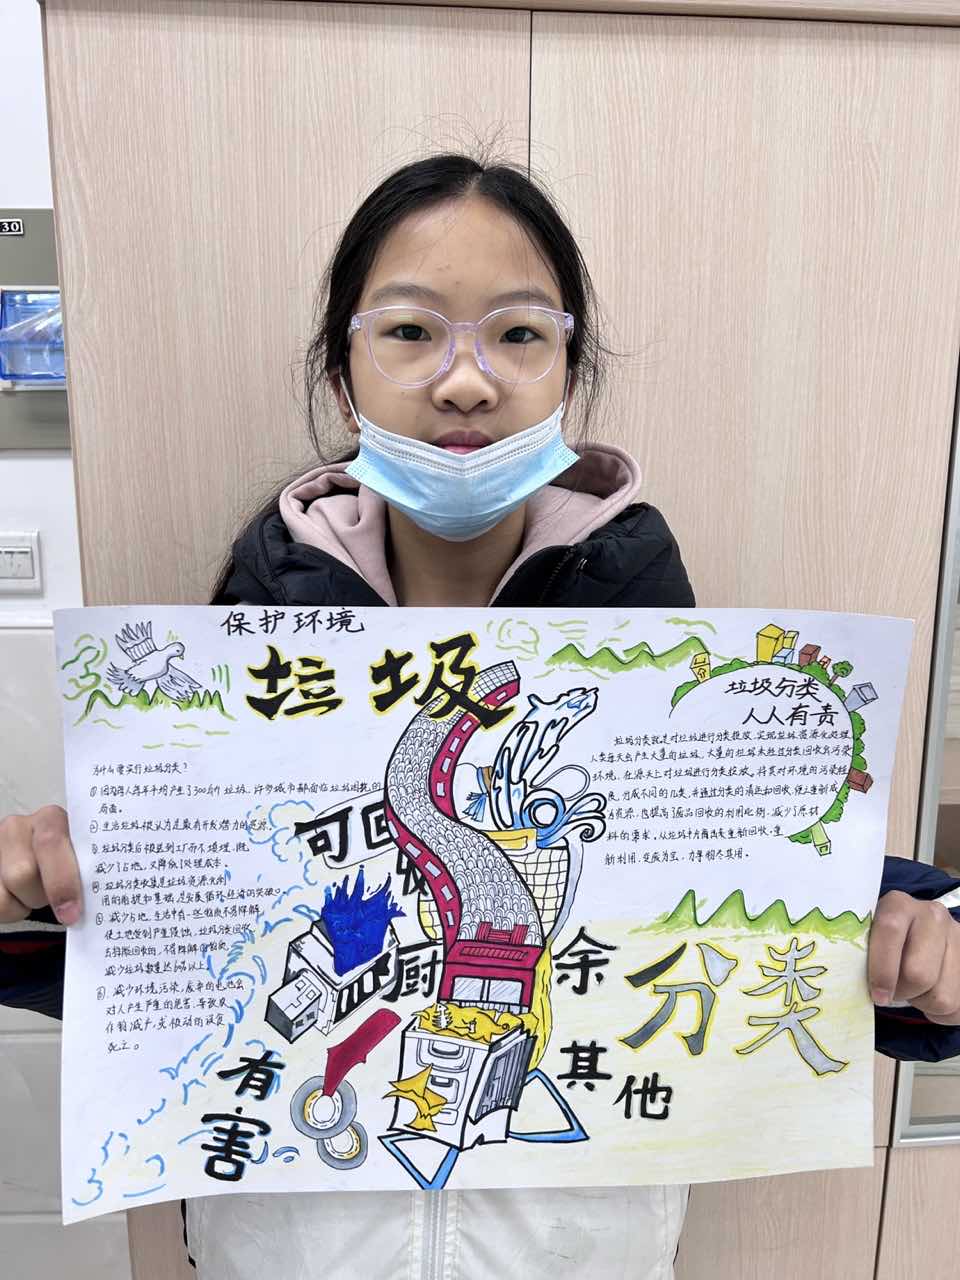 30
保护环境
垃圾
垃圾分类
人人有责
为什么要实行垃圾分类？
①因为每人每年平均产生了300斤垃圾，许多城市都面临垃圾围城的
②生活垃圾被认为是最有开发潜力的资源。
③垃圾分类后被送到工厂而不填埋，既
减少了占地，又降低了处理成本。
④垃圾分类收集是垃圾资源化利
用的前提和基础，是发展循环经济的突破口。
⑤减少占地。生活中有一些物质不易降解，
使土地受到严重侵蚀。垃圾分类回收
去掉能回收的、不易降解的物质，
减少垃圾数量达60%以上。
⑥减少环境污染，废弃的电池会
对人产生严重的危害，导致农
作物减产，
死亡。
垃圾分类就是对垃圾进行分类投放，实现垃圾资源化处理。
人类每天会产生大量的垃圾，大量的垃圾未经过分类回收会污染
环境，在源头上对垃圾进行分类投放，将其对环境的污染
分成不同的几类，并通过分类的清运和回收，使之重新成
为资源，也提高了废品回收的利用比例，减少了原材
料的需求。从垃圾中
新利用，变废为宝，力争物尽其用。
可回收
厨余
分类
有害
其他